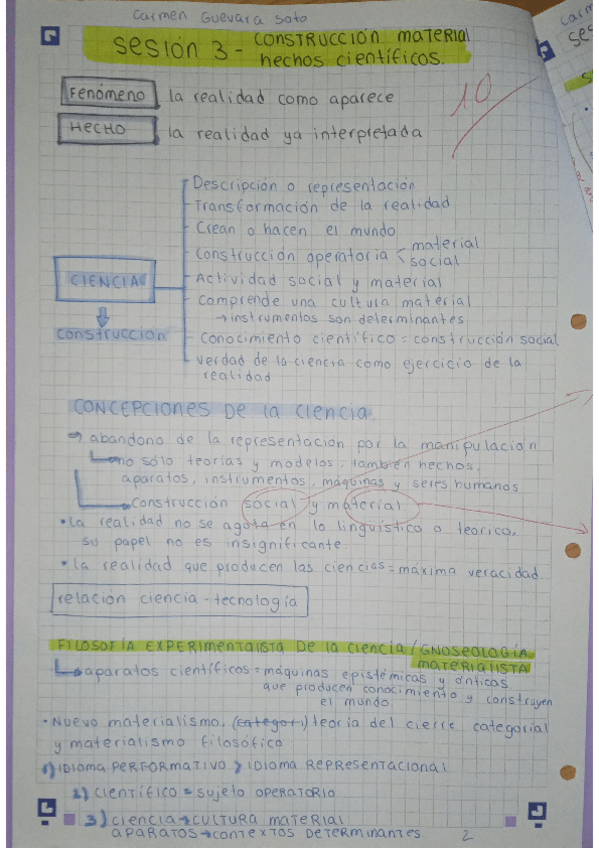 Carmen Guevara Soto
sesión 3 - CONSTRUCCIÓN MATERIAL
hechos científicos.
FENÓMENO la realidad como aparece
HECHO la realidad ya interpretada
10
Descripción o representación
Transformación de la realidad
Crean o hacen el mundo
Construcción operatoria < material
social
CIENCIA
Actividad social y material
Comprende una cultura material
→ instrumentos son determinantes
construccion
Conocimiento científico = construcción social
verdad de la ciencia como ejercicio de la
realidad
CONCEPCIONES DE LA CIENCIA.
→ abandono de la representación por la manipulación
no sólo teorías y modelos, también hechos,
aparatos, instrumentos, máquinas y seres humanos
Construcción social y material
• la realidad no se agota en lo lingüístico o teórico,
su papel no es insignificante
• la realidad que producen las ciencias = máxima veracidad
relación ciencia - tecnología
FILOSOFÍA EXPERIMENTALISTA DE LA CIENCIA / GNOSEOLOGÍA
MATERIALISTA
aparatos científicos = máquinas epistémicas y ónticas
que producen conocimiento y construyen
el mundo.
• Nuevo materialismo, (categori) teoría del cierre categorial
y materialismo filosófico
1) IDIOMA PERFORMATIVO > IDIOMA REPRESENTACIONAL
2) científico = sujeto OPERATORIO
3) ciencia → CULTURA MATERIAL
APARATOS → CONTEXTOS DETERMINANTES
2